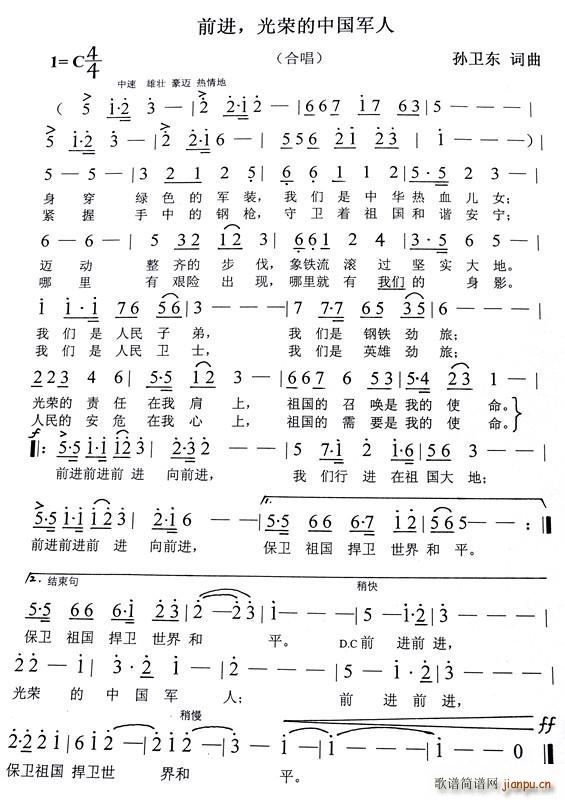 前进，光荣的中国军人
1=C 4/4
（合唱）
孙卫东 词曲
中速 雄壮 豪迈 热情地
( 5 i·2 3 - | 2 2·i 2 - | 6 6 7 i 7 6 3 5 |
5 i·2 3 - | 2 2·i 6 - | 5 5 6 2 i 2 3 | i - - - )|
5 - 5 - | 3 2 1 2 5 | 6 6 1 2 1 2 | 3·5 5 3 1 |
身 穿 绿 色 的 军 装， 我 们 是 中 华 热 血 儿 女；
紧 握 手 中 的 钢 枪， 守 卫 着 祖 国 和 谐 安 宁；
6 - 6 - | 5 3 2 1 2 | 6 6 1 2 4 | 3·6 5 5 |
迈 动 整 齐 的 步 伐， 象铁流 滚 过 坚 实 大 地。
哪 里 有 艰险 出 现， 哪里就 有 我们 的 身 影。
i i·i 7 6 5 6 | 3 - - - | 7 7·7 6 5 3 5 | 6 - - - |
我 们 是 人民 子 弟， 我 们 是 钢铁 劲 旅；
我 们 是 人民 卫 士， 我 们 是 英雄 劲 旅；
2 2 3 4 6 | 5·5 1 2 3 - | 6 6 7 6 3 | 5·4 2 3 1 - |
光荣的 责 任 在我 肩 上， 祖国的 召 唤是 我的 使 命。
人民的 安 危 在我 心 上， 祖国的 需 要是 我的 使 命。
f
|: 5·5 i·i i 2 3 | 2·i 2 - - | i 7 2 i·6 | 5 - - - |
前进前进前 进 向前进， 我 们 行 进 在祖 国大 地；
5·5 i·i i 2 3 | 2·i 6 - - | 5·5 6 6 6·7 i 2 | 5 6 5 - - :|
前进前进前 进 向前进， 保卫 祖国 捍卫 世界 和 平。
2. 结束句
稍快
5·5 6 6 6·i 2 3 | 2 - 2 3 | i - - - | 5 - i·2 |
保卫 祖国 捍卫 世界 和 平。 D.C 前 进前 进，
2 2 - i | 3 - 2 i 2 | 2 - - - | 5 - i·2 | 3 - - - |
光 荣 的 中 国 军 人； 前 进 前 进，
稍慢
ff
2·2 2 2 i | 6 i 2 i 2 - | 3 - i - | i - i - | i - - 0 ‖
保卫祖国 捍卫世 界和 平。
歌谱简谱网
jianpu.cn